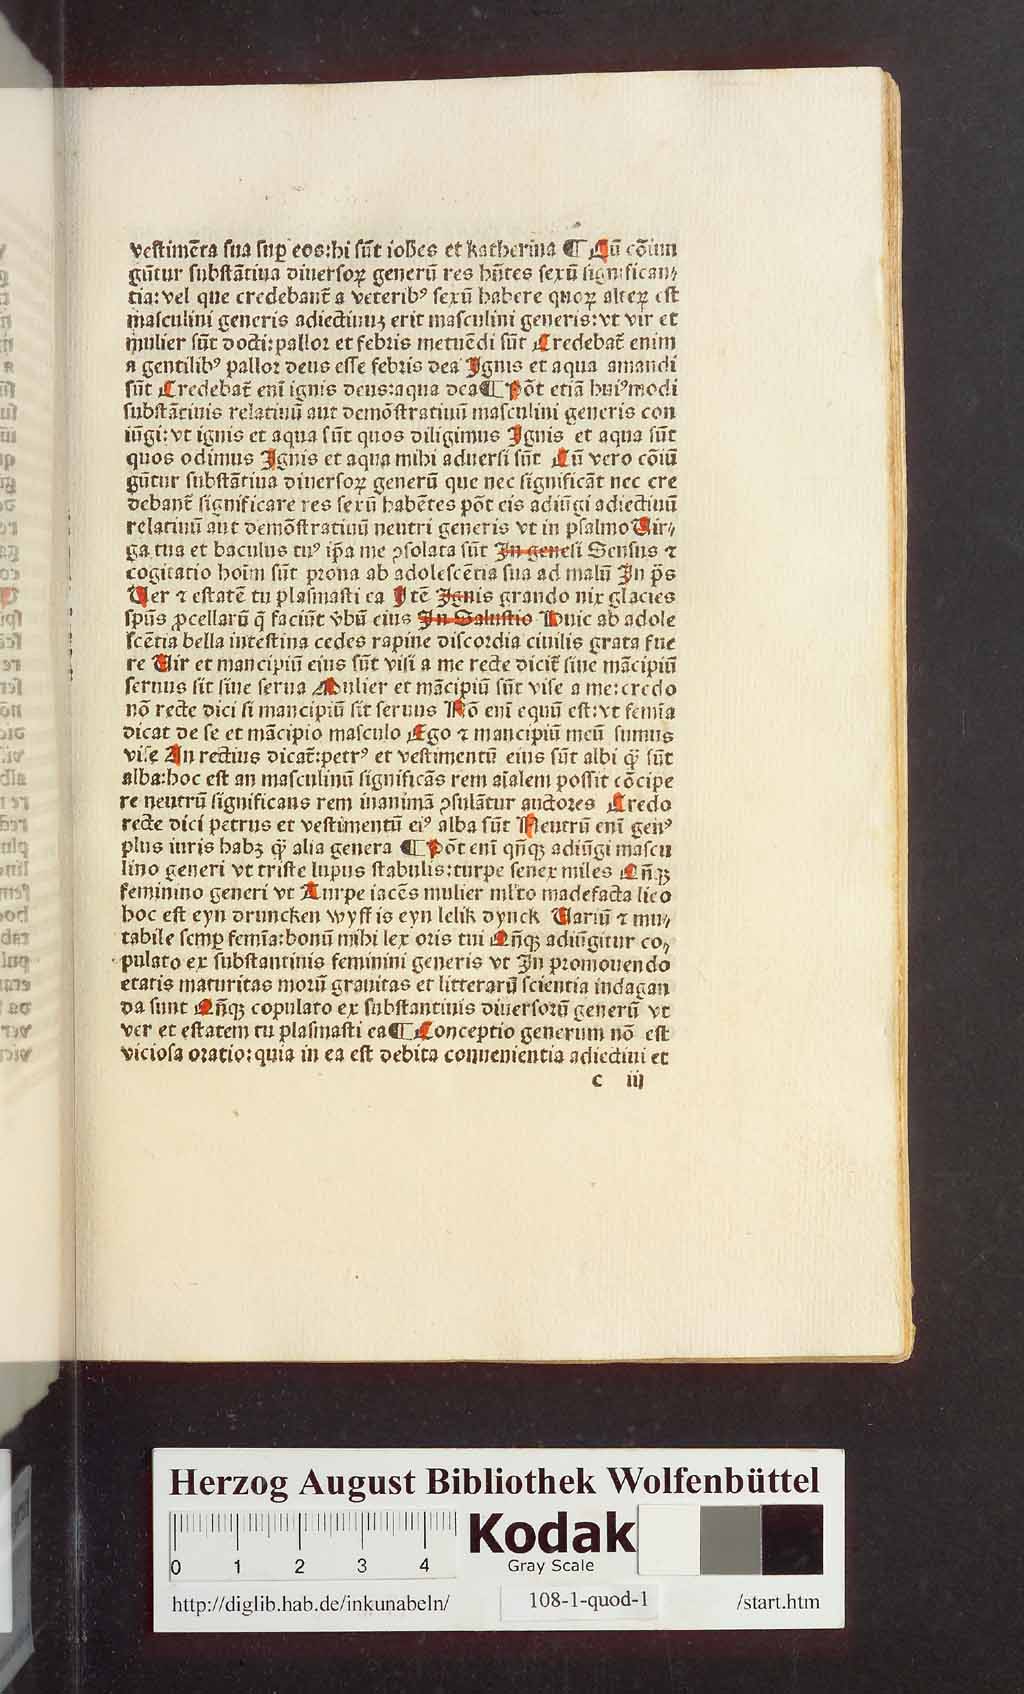 vestimēta sua suꝑ eos:hi sūt ioħes et katherina ¶ Cū cōiun
gūtur substātiua diuersoꝝ generū res hn̄tes sexū significan⸗
tia:vel que credebant̄ a veteribꝰ sexū habere quoꝝ alteꝝ est
masculini generis adiectiuuꝫ erit masculini generis:vt vir et
mulier sūt docti:pallor et febris metuēdi sūt Credebat̄ enim
a gentilibꝰ pallor deus esse febris dea Ignis et aqua amandi
sūt Credebat̄ enī ignis deus:aqua dea¶ Pōt etiā huiꝰmodi
substātiuis relatiuū aut demōstratiuū masculini generis con
iūgi:vt ignis et aqua sūt quos diligimus Ignis et aqua sūt
quos odimus Ignis et aqua mihi aduersi sūt Cū vero cōiū
gūtur substātiua diuersoꝝ generū que nec significāt nec cre
debant̄ significare res sexū habētes pōt eis adiūgi adiectiuū
relatiuū aut demōstratiuū neutri generis vt in psalmo Uir⸗
ga tua et baculus tuꝰ ip̄a me ꝯsolata sūt In genesi Sensus ⁊
cogitatio hoīm sūt prona ab adolescētia sua ad malū In p̄s
Uer ⁊ estatē tu plasmasti ea Itē Ignis grando nix glacies
spūs ꝓcellarū q̄ faciūt v̄bū eius In Salustio Huic ab adole
scētia bella intestina cedes rapine discordia ciuilis grata fue
re Uir et mancipiū eius sūt visi a me recte dicit̄ siue mācipiū
seruus sit siue serua Mulier et mācipiū sūt vise a me:credo
nō recte dici si mancipiū sit seruus Nō enī equū est:vt femīa
dicat de se et mācipio masculo Ego ⁊ mancipiū meū sumus
vise An rectius dicat̄:petrꝰ et vestimentū eius sūt albi qͣꝫ sūt
alba:hoc est an masculinū significās rem aīalem possit cōcipe
re neutrū significans rem inanimā ꝯsulātur auctores Credo
recte dici petrus et vestimentū eiꝰ alba sūt Neutrū enī genꝰ
plus iuris habꝫ qͣꝫ alia genera ¶ Pōt enī qn̄qꝫ adiūgi mascu
lino generi vt triste lupus stabulis:turpe senex miles Qn̄qꝫ
feminino generi vt Turpe iacēs mulier ml̄to madefacta lieo
hoc est eyn druncken wyff is eyn lelik dynck Uariū ⁊ mu⸗
tabile semꝑ femīa:bonū mihi lex oris tui Qn̄qꝫ adiūgitur co⸗
pulato ex substantiuis feminini generis vt In promouendo
etatis maturitas morū grauitas et litterarū scientia indagan
da sunt Qn̄qꝫ copulato ex substantiuis diuersorū generū vt
ver et estatem tu plasmasti ea¶ Conceptio generum nō est
viciosa oratio:quia in ea est debita conuenientia adiectiui et
c iij
Herzog August Bibliothek Wolfenbüttel
0 1 2 3 4
Kodak
Gray Scale
http://diglib.hab.de/inkunabeln/ 108-1-quod-1 /start.htm